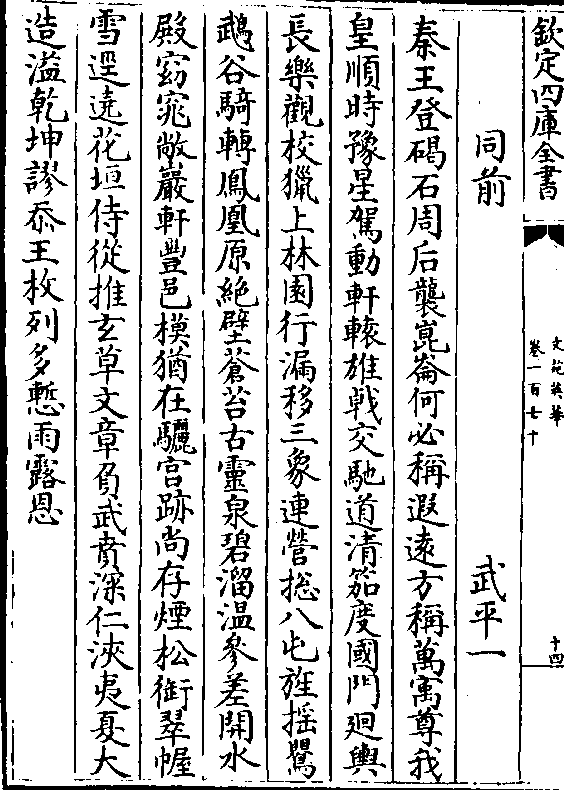 欽定四庫全書
文苑英華
卷一百七十
十四
同前 武平一
秦王登碣石周后襲崑崙何必稱遐遠方稱萬寓尊我
皇順時豫星駕動軒轅雄戟交馳道清笳度國門廻輿
長樂觀校獵上林園行漏移三象連營揔八屯旌揺鸎
鵡谷騎轉鳳凰原絶壁蒼苔古靈泉碧溜温參差開水
殿窈窕敞巖軒豐邑模猶在驪宫跡尚存煙松銜翠幄
雪逕遶花垣侍從推玄草文章負武賁深仁浹夷夏大
造溢乾坤謬忝王枚列多慙雨露恩